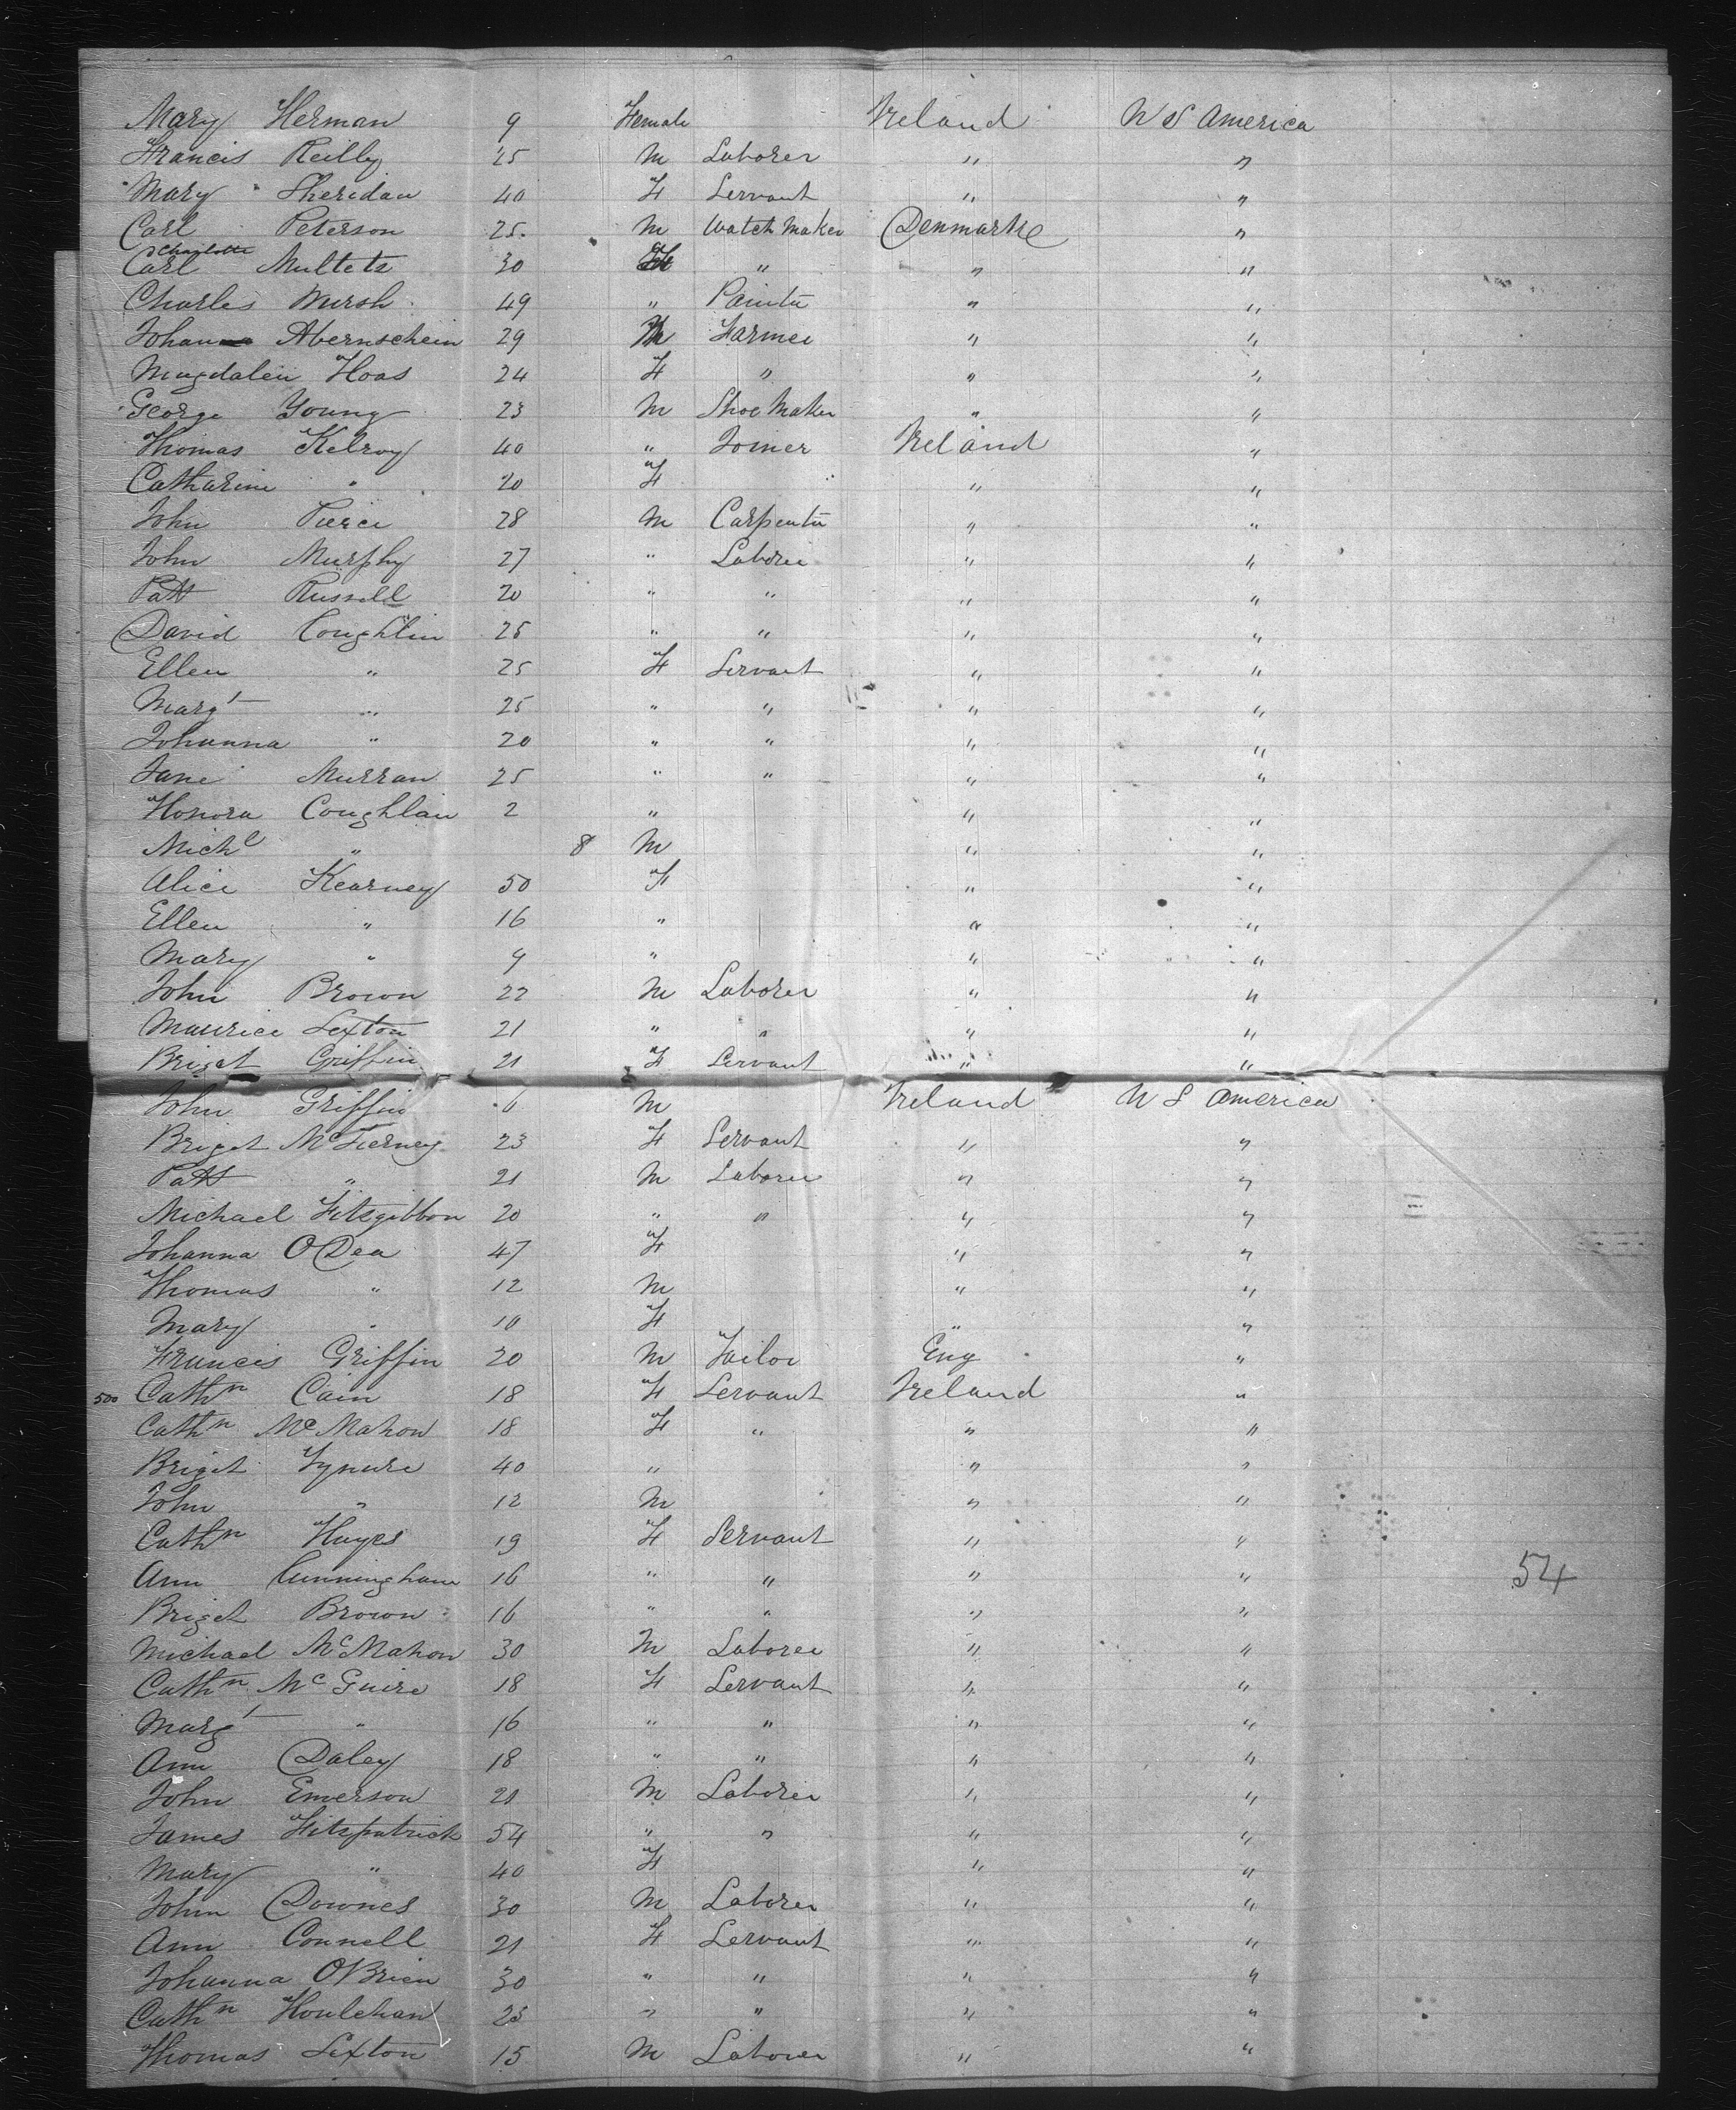 Mary Herman 9 Female Ireland U S America
Francis Reilly 25 M Laborer " "
Mary Sheridan 40 F Servant " "
Carl Peterson 25 M Watch Maker Denmark "
Charlotte
Carl Multetz 30 F " " "
Charles Mersh 49 " Painter " "
Johan Abernschein 29 M Farmer " "
Magdalen Hoas 24 F " " "
George Young 23 M Shoe Maker " "
Thomas Kelroy 40 " Joiner Ireland "
Catharine " 20 F " "
John Pierce 28 M Carpenter " "
John Murphy 27 " Laborer " "
Patt Russell 20 " " " "
David Coughlin 25 " " " "
Ellen " 25 F Servant " "
Margt " 25 " " " "
Johanna " 20 " " " "
Jane Murran 25 " " " "
Honora Coughlan 2 " " "
Michl " 8 M " "
Alice Kearney 50 F " "
Ellen " 16 " " "
Mary " 9 " " "
John Brown 22 M Laborer " "
Maurice Sexton 21 " " " "
Briget Griffin 21 F Servant " "
John Griffin 6 M Ireland U S America
Briget McTierney 23 F Servant " "
Patt " 21 M Laborer " "
Michael Fitzgibbon 20 " " " "
Johanna O Dea 47 F " "
Thomas " 12 M " "
Mary " 10 F " "
Francis Griffin 20 M Tailor Eng "
500 Cathn Cain 18 F Servant Ireland "
Cathn McMahon 18 F " " "
Briget 40 " " "
John " 12 M " "
Cathn Hayes 19 F Servant " "
Ann Cunningham 16 " " " "
54
Briget Brown 16 " " " "
Michael McMahon 30 M Laborer " "
Cathn McGuire 18 F Servant " "
Margt " 16 " " " "
Ann Daley 18 " " " "
John Emerson 21 M Laborer " "
James Fitzpatrick 54 " " " "
Mary " 40 F " "
John Downes 30 M Laborer " "
Ann Connell 21 F Servant " "
Johanna OBrien 30 " " " "
Cathn Houlehan 23 " " " "
Thomas Sexton 15 M Laborer " "